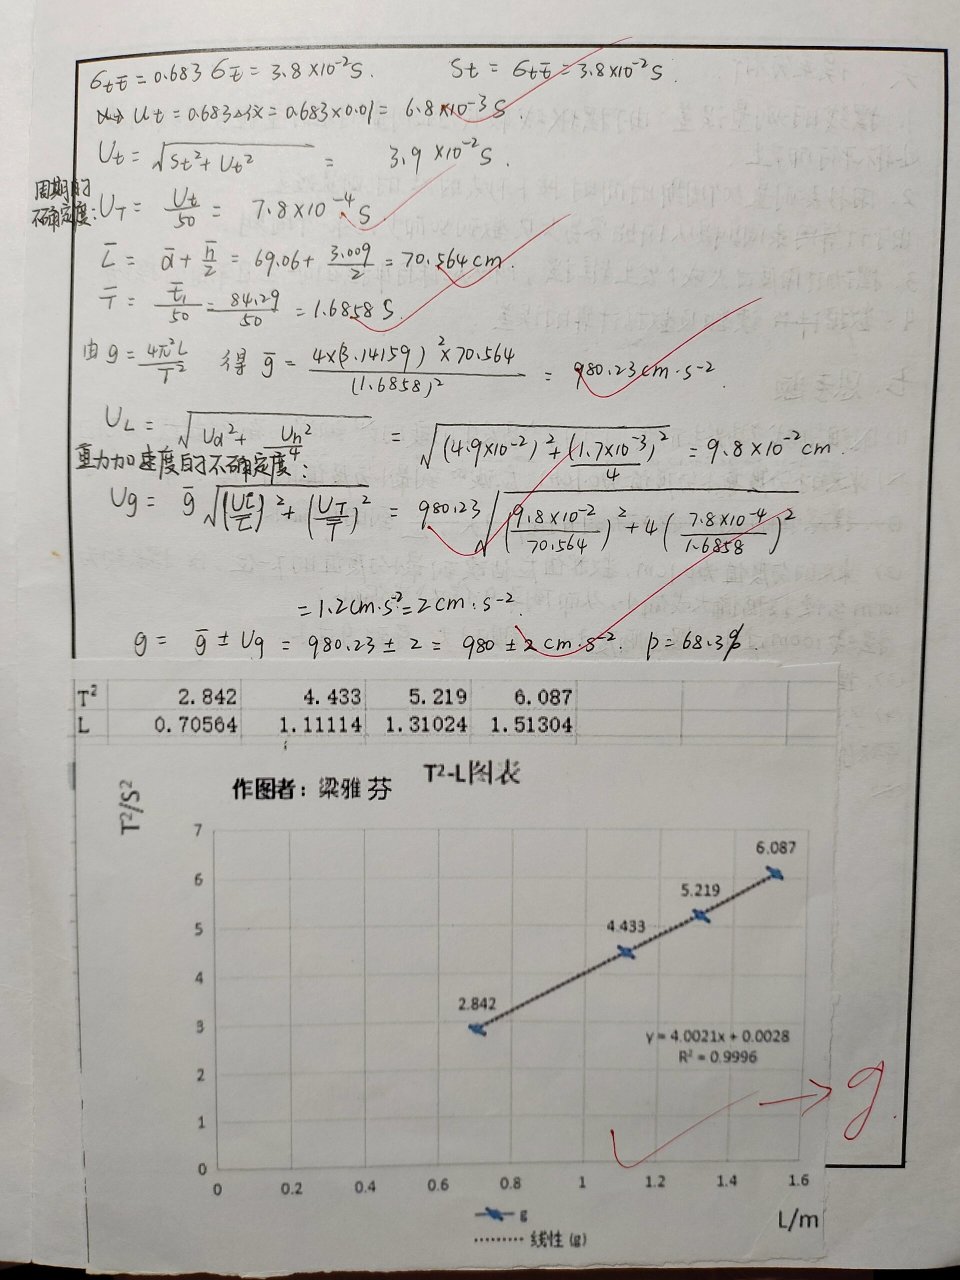 σt̄ = 0.683 σt̄ = 3.8×10⁻²s. St = σt̄ = 3.8×10⁻²s.
Ut = 0.683Δ仪 = 0.683×0.01 = 6.8×10⁻³s
Ut = √(St²+Ut²) = 3.9×10⁻²s.
周期的不确定度: UT = Ut/50 = 7.8×10⁻⁴s
L̄ = d̄ + h̄/2 = 69.06 + 3.009/2 = 70.564cm
T̄ = t̄₁/50 = 84.29/50 = 1.6858s.
由 g = 4π²L/T² 得 ḡ = 4×(3.14159)²×70.564/(1.6858)² = 980.23cm·s⁻².
UL = √(Ud²+Uh²/4) = √((4.9×10⁻²)²+(1.7×10⁻³)²/4) = 9.8×10⁻²cm.
重力加速度的不确定度:
Ug = ḡ√((UL̄/L̄)²+(UT/T̄)²) = 980.23√((9.8×10⁻²/70.564)²+4(7.8×10⁻⁴/1.6858)²)
= 1.2cm·s⁻² = 2cm·s⁻².
g = ḡ ± Ug = 980.23±2 = 980±2cm·s⁻². p=68.3%.
T² 2.842 4.433 5.219 6.087
L 0.70564 1.11114 1.31024 1.51304
T²-L图表
作图者：梁雅芬
T²/S²
7
6
5
4
3
2
1
0
6.087
5.219
4.433
2.842
y = 4.0021x + 0.0028
R² = 0.9996
→g
0 0.2 0.4 0.6 0.8 1 1.2 1.4 1.6
L/m
g
线性 (g)